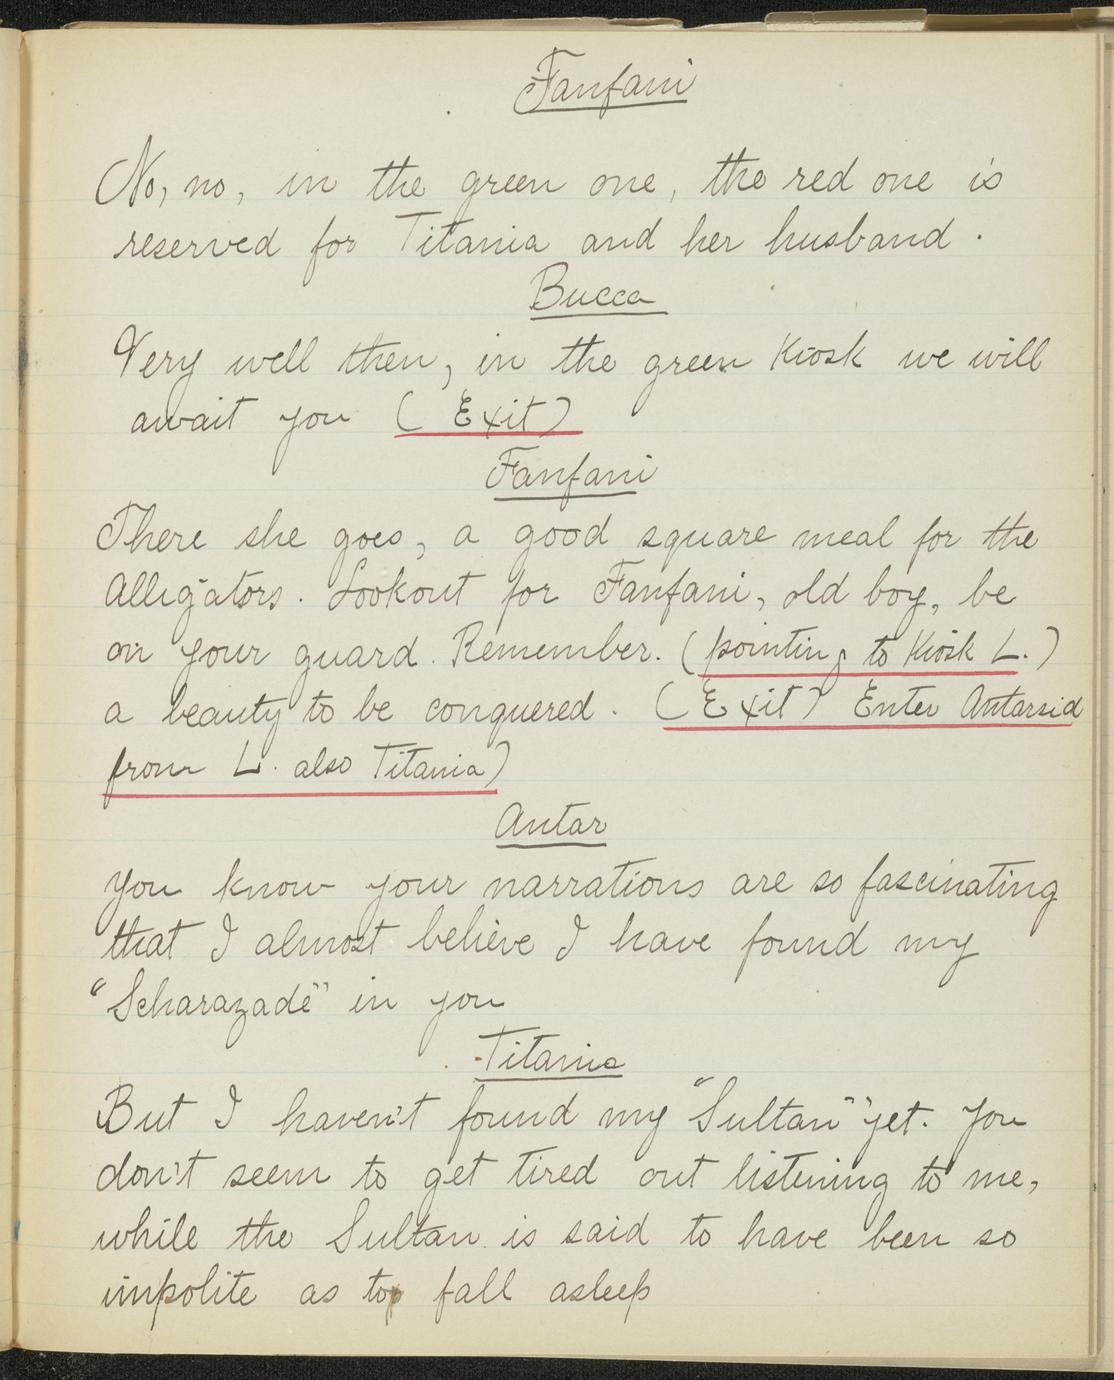 Fanfani
No, no, in the green one, the red one is
reserved for Titania and her husband.
Bucca
Very well then, in the green Kiosk we will
await you (Exit)
Fanfani
There she goes, a good square meal for the
Alligators. Lookout for Fanfani, old boy, be
on your guard. Remember. (pointing to Kiosk L.)
a beauty to be conquered. (Exit) Enter
from L. also Titania)
Antar
You know your narrations are so fascinating
that I almost believe I have found my
"Scharazade" in you
Titania
But I haven't found my "Sultan" yet. You
don't seem to get tired out listening to me,
while the Sultan is said to have been so
impolite as to fall asleep